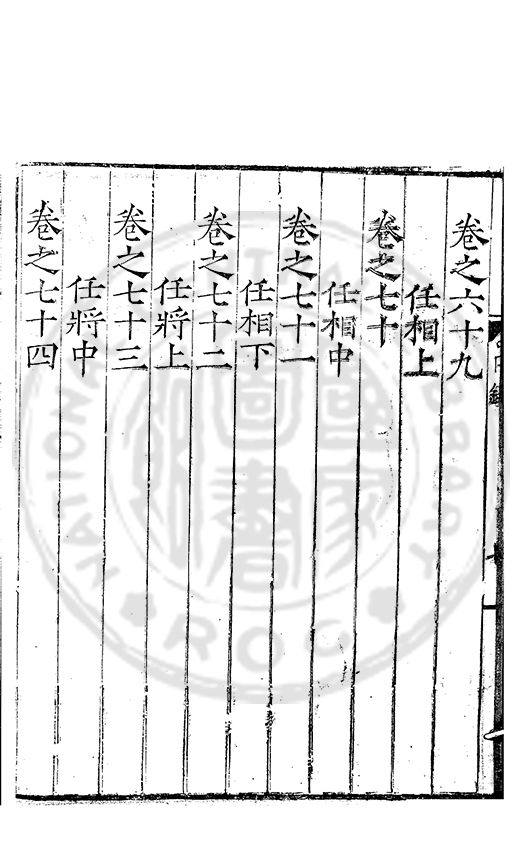 卷之六十九
任相上
卷之七十
任相中
卷之七十一
任相下
卷之七十二
任將上
卷之七十三
任將中
卷之七十四